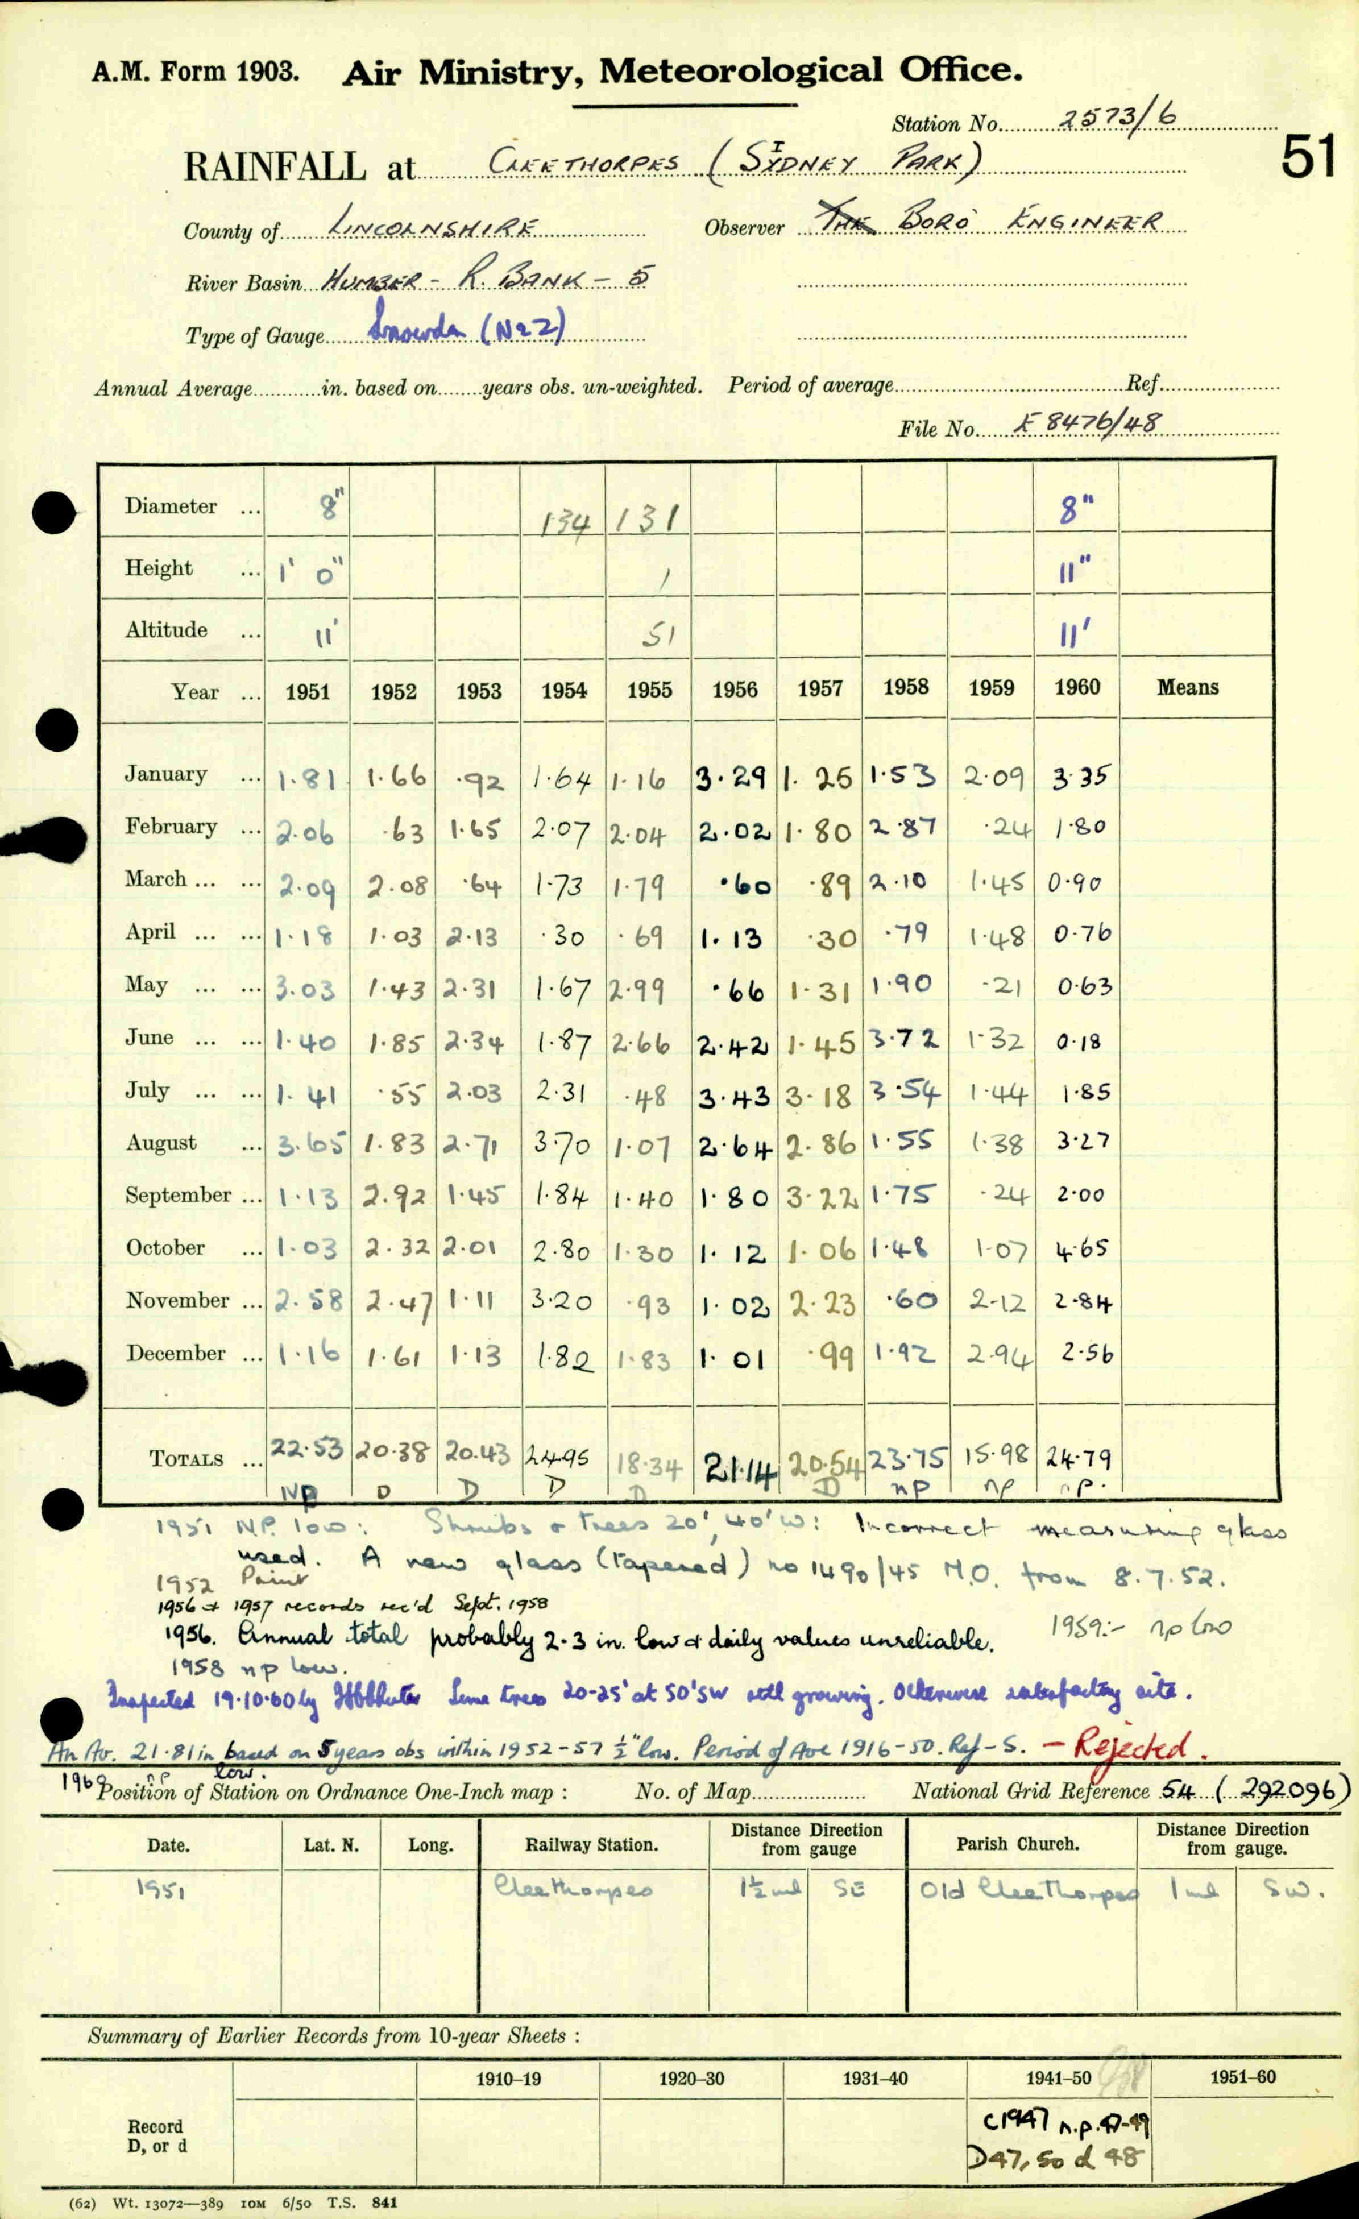 A.M. Form 1903. Air Ministry, Meteorological Office.
Station No. 2573/6
51
RAINFALL at CLEETHORPES (SIDNEY PARK)
County of LINCOLNSHIRE Observer THE BORO' ENGINEER
River Basin HUMBER - R. BANK - 5
Type of Gauge Snowdon (No 2)
Annual Average in. based on years obs. un-weighted. Period of average Ref.
File No. E 8476/48
Diameter ... 8" 134 131 8"
Height ... 1' 0" 1 11"
Altitude ... 11' 51 11'
Year ... 1951 1952 1953 1954 1955 1956 1957 1958 1959 1960 Means
January ... 1.81 1.66 .92 1.64 1.16 3.29 1.25 1.53 2.09 3.35
February ... 2.06 .63 1.65 2.07 2.04 2.02 1.80 2.87 .24 1.80
March ... ... 2.09 2.08 .64 1.73 1.79 .60 .89 2.10 1.45 0.90
April ... ... 1.18 1.03 2.13 .30 .69 1.13 .30 .79 1.48 0.76
May ... ... 3.03 1.43 2.31 1.67 2.99 .66 1.31 1.90 .21 0.63
June ... ... 1.40 1.85 2.34 1.87 2.66 2.42 1.45 3.72 1.32 0.18
July ... ... 1.41 .55 2.03 2.31 .48 3.43 3.18 3.54 1.44 1.85
August ... 3.65 1.83 2.71 3.70 1.07 2.64 2.86 1.55 1.38 3.27
September ... 1.13 2.92 1.45 1.84 1.40 1.80 3.22 1.75 .24 2.00
October ... 1.03 2.32 2.01 2.80 1.30 1.12 1.06 1.48 1.07 4.65
November ... 2.58 2.47 1.11 3.20 .93 1.02 2.23 .60 2.12 2.84
December ... 1.16 1.61 1.13 1.82 1.83 1.01 .99 1.92 2.94 2.56
TOTALS ... 22.53 20.38 20.43 24.95 18.34 21.14 20.54 23.75 15.98 24.79
NP D D D D D np np n.p.
1951 N.P. low: Shrubs & trees 20', 40' W: Incorrect measuring glass
used. A new glass (tapered) no 1490/45 M.O. from 8.7.52.
1952 Paint
1956 & 1957 records rec'd Sept. 1958
1956. Annual total probably 2-3 in. low & daily values unreliable. 1959:- np low
1958 np low.
Inspected 19.10.60 by Lime trees 20-25' at 50' SW still growing. Otherwise satisfactory site.
An Av. 21.81 in based on 5 years obs within 1952-57 ½" low. Period of Ave 1916-50. Ref-S. - Rejected.
1960 np low.
Position of Station on Ordnance One-Inch map : No. of Map National Grid Reference 54 (292096)
Date. Lat. N. Long. Railway Station. Distance from gauge Direction Parish Church. Distance from gauge. Direction
1951 Cleethorpes 1½ ml SE Old Cleethorpes 1 ml SW.
Summary of Earlier Records from 10-year Sheets :
1910–19 1920–30 1931–40 1941–50 1951–60
Record D, or d
c1947 n.p. 47-49
D47, 50 d 48
(62) Wt. 13072—389 10M 6/50 T.S. 841